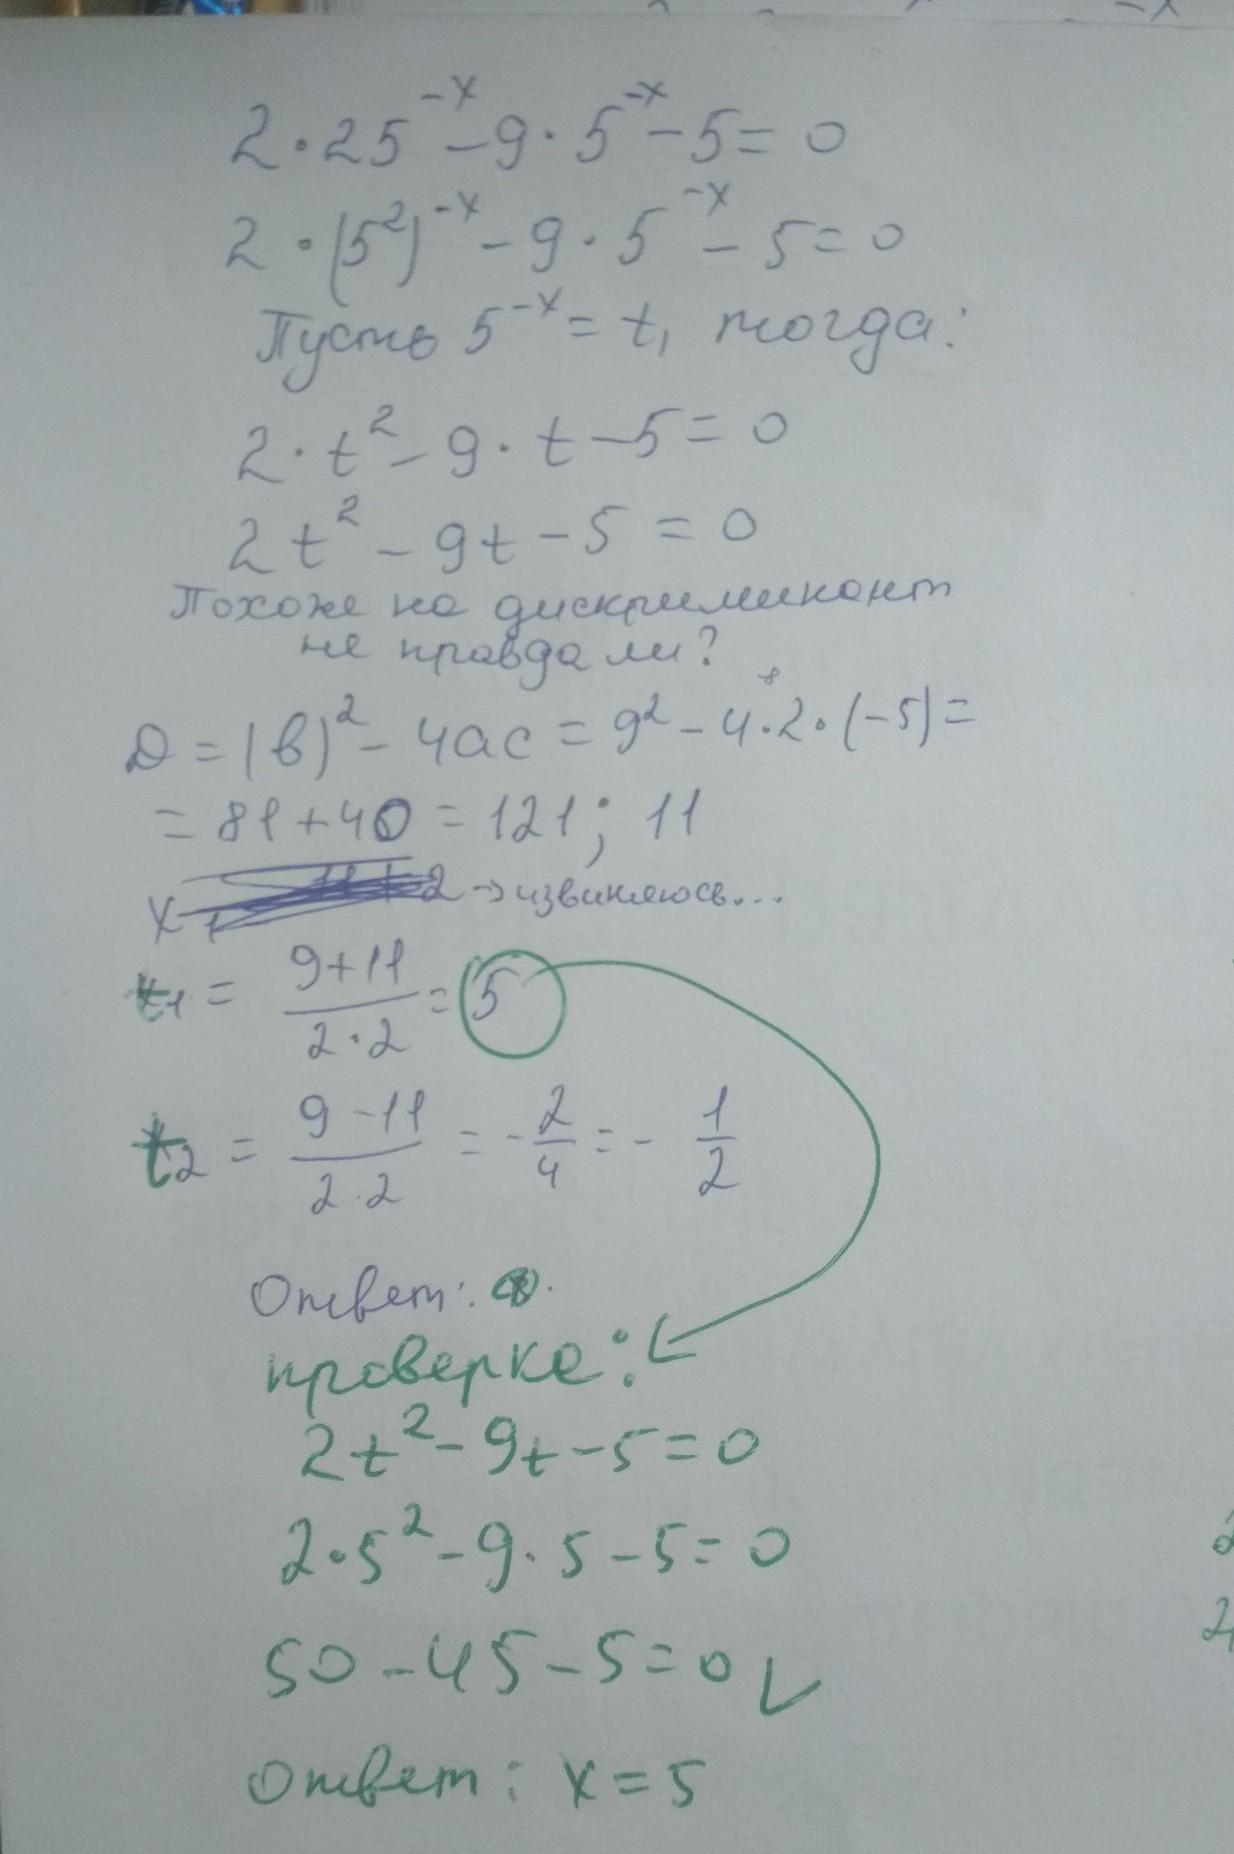 2·25^{-x} - 9·5^{-x} - 5 = 0
2·(5²)^{-x} - 9·5^{-x} - 5 = 0
Пусть 5^{-x} = t, тогда:
2·t² - 9·t - 5 = 0
2t² - 9t - 5 = 0
Похоже на дискриминант
не правда ли?
D = (b)² - 4ac = 9² - 4·2·(-5) =
= 81 + 40 = 121; 11
x₁ → извиняюсь...
t₁ = \frac{9+11}{2·2} = 5
t₂ = \frac{9-11}{2·2} = -\frac{2}{4} = -\frac{1}{2}
Ответ:
проверка:
2t² - 9t - 5 = 0
2·5² - 9·5 - 5 = 0
50 - 45 - 5 = 0 ✓
Ответ: x = 5